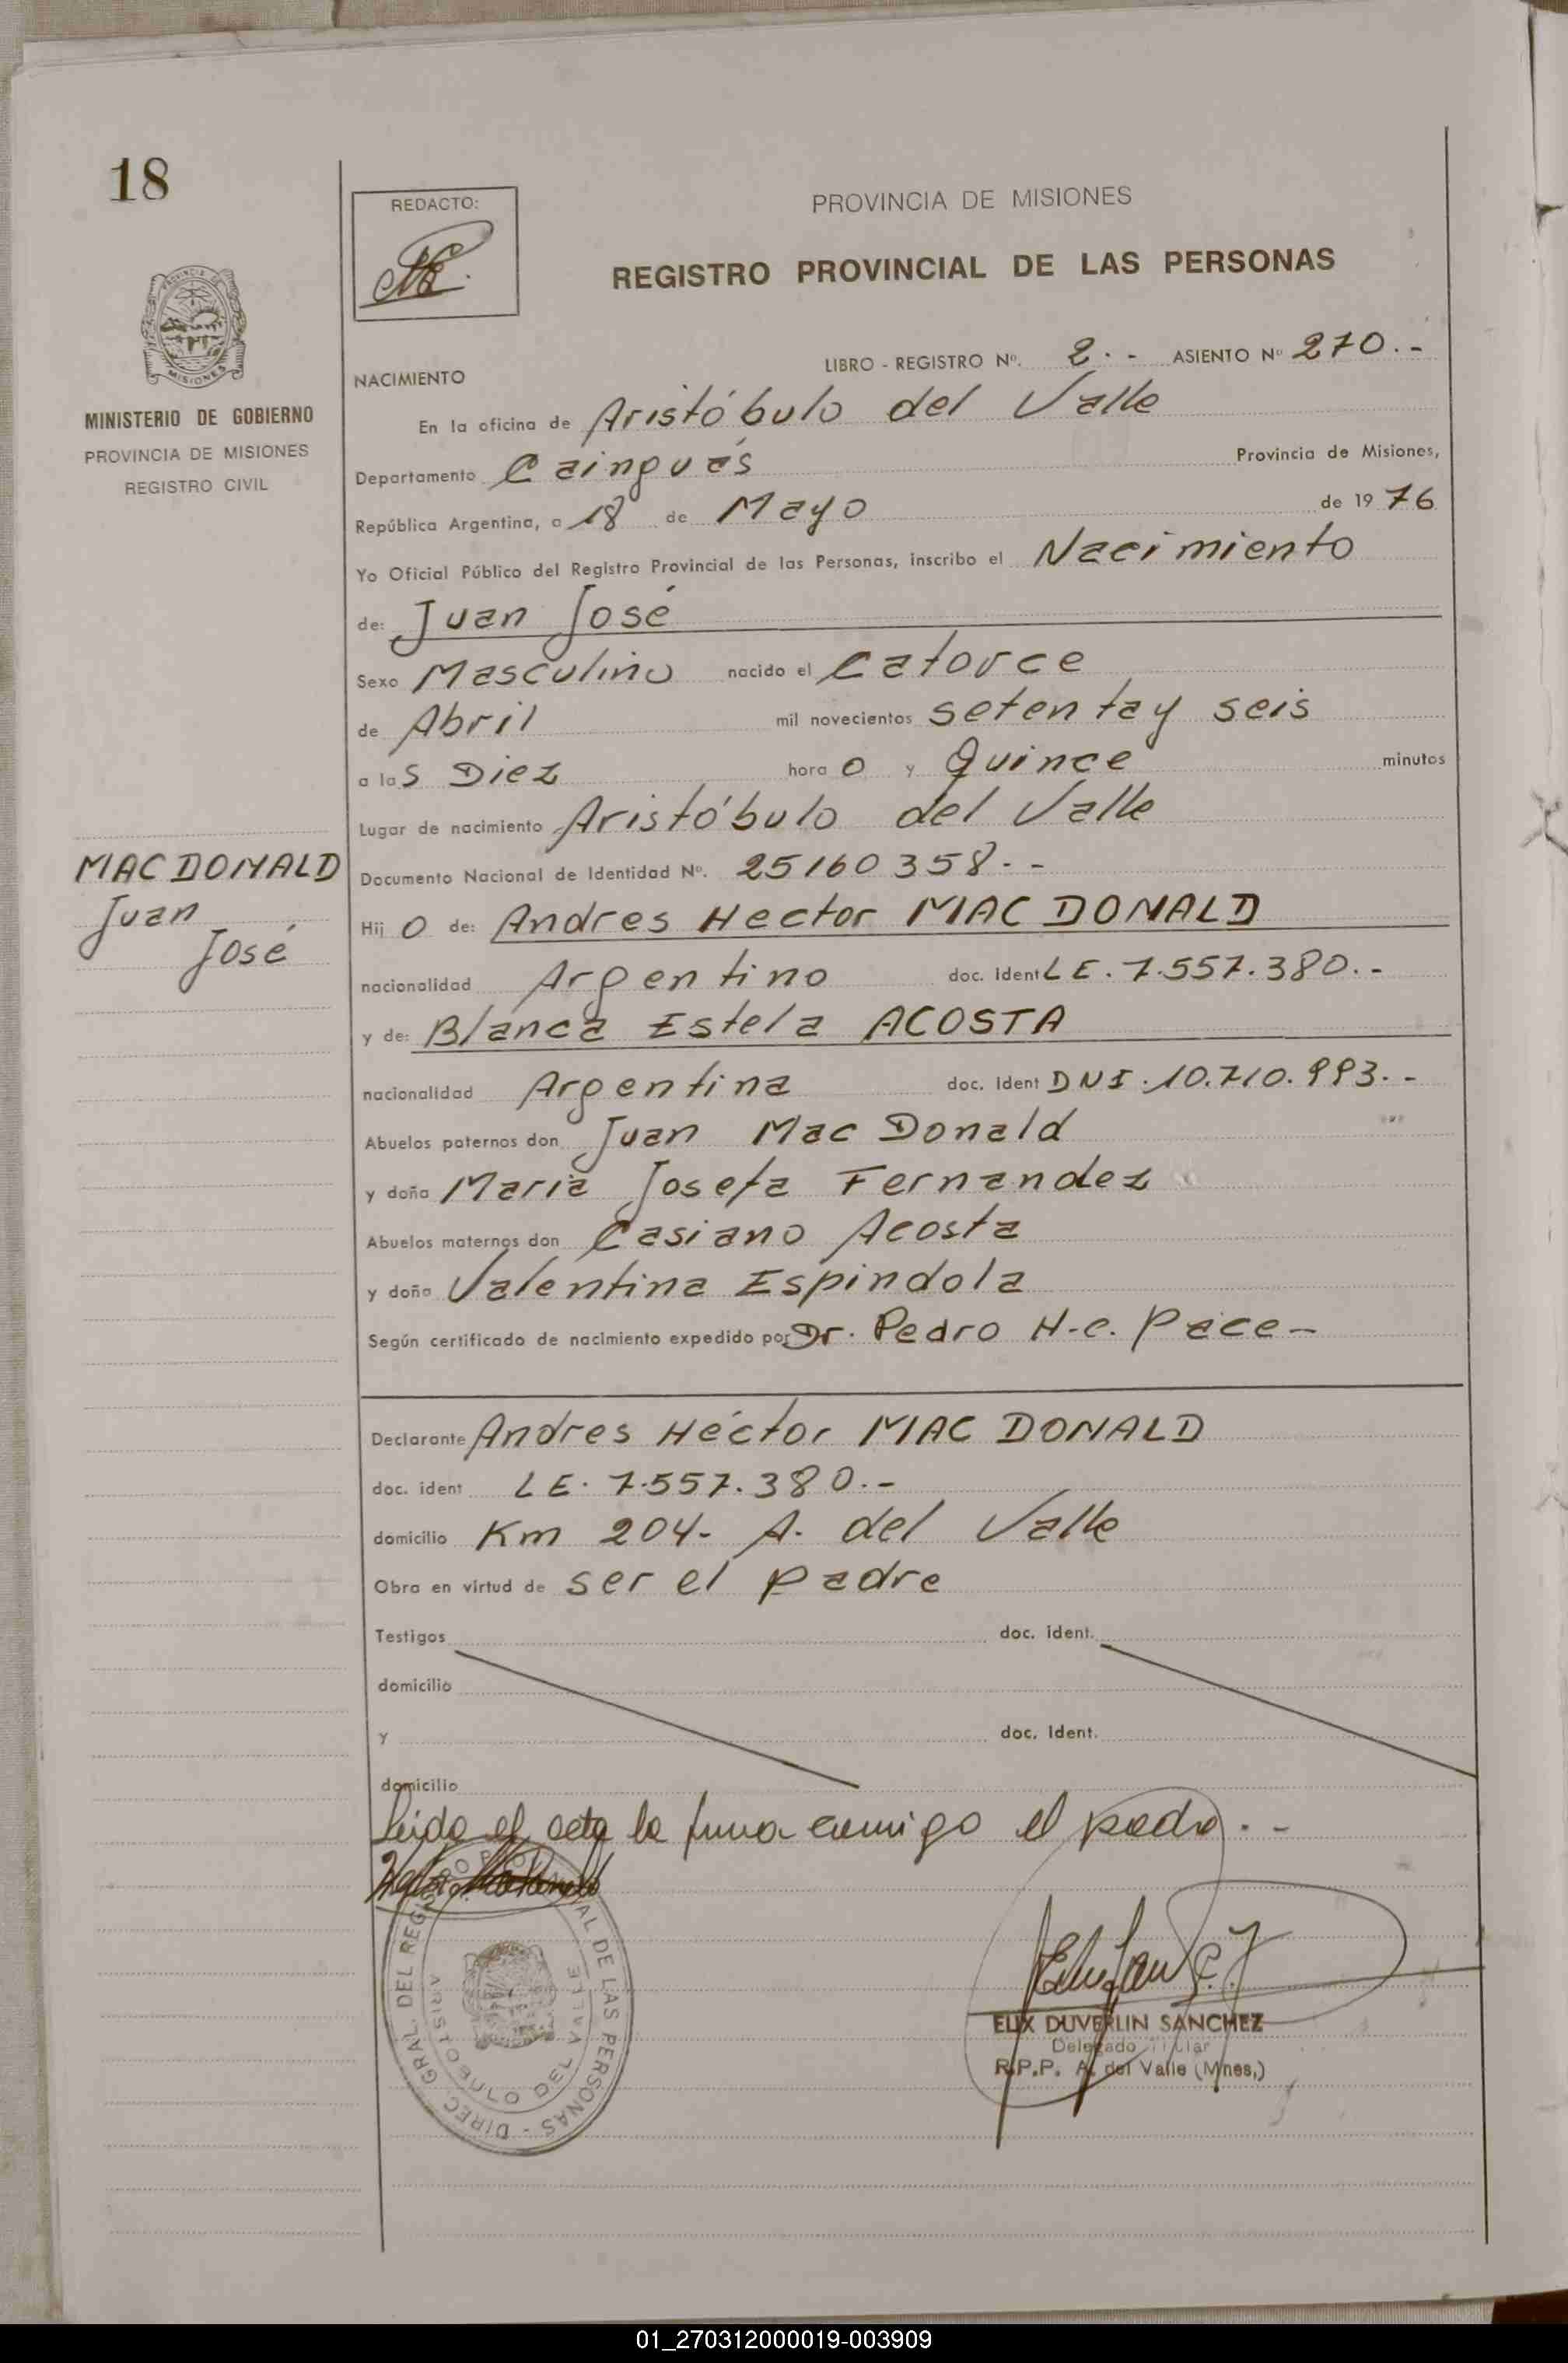 18
REDACTO:
PROVINCIA DE MISIONES
REGISTRO PROVINCIAL DE LAS PERSONAS
MINISTERIO DE GOBIERNO
PROVINCIA DE MISIONES
REGISTRO CIVIL
LIBRO - REGISTRO Nº. 2.- ASIENTO Nº 270.-
NACIMIENTO
En la oficina de Aristóbulo del Valle
Departamento Cainguás Provincia de Misiones,
República Argentina, a 18 de Mayo de 1976
Yo Oficial Público del Registro Provincial de las Personas, inscribo el Nacimiento
de: Juan José
Sexo Masculino nacido el Catorce
de Abril mil novecientos setenta y seis
a las Diez hora 0 y Quince minutos
Lugar de nacimiento Aristóbulo del Valle
MAC DONALD
Juan
José
Documento Nacional de Identidad Nº. 25160358.--
Hijo de: Andres Hector MAC DONALD
nacionalidad Argentino doc. ident LE. 7.557.380.-
y de: Blanca Estela ACOSTA
nacionalidad Argentina doc. ident DNI. 10.710.993.-
Abuelos paternos don Juan Mac Donald
y doña Maria Josefa Fernandez
Abuelos maternos don Casiano Acosta
y doña Valentina Espindola
Según certificado de nacimiento expedido por Dr. Pedro H.C. Pace-
Declarante Andres Héctor MAC DONALD
doc. ident LE. 7.557.380.-
domicilio Km 204- A. del Valle
Obra en virtud de ser el padre
Testigos doc. ident.
domicilio
y doc. ident.
domicilio
Leida el acta la firma conmigo el padre.-
DIREC. GRAL. DEL REGISTRO PROVINCIAL DE LAS PERSONAS
ARISTOBULO DEL VALLE
ELIX DUVERLIN SANCHEZ
Delegado Titular
R.P.P. A. del Valle (Mnes,)
01_270312000019-003909